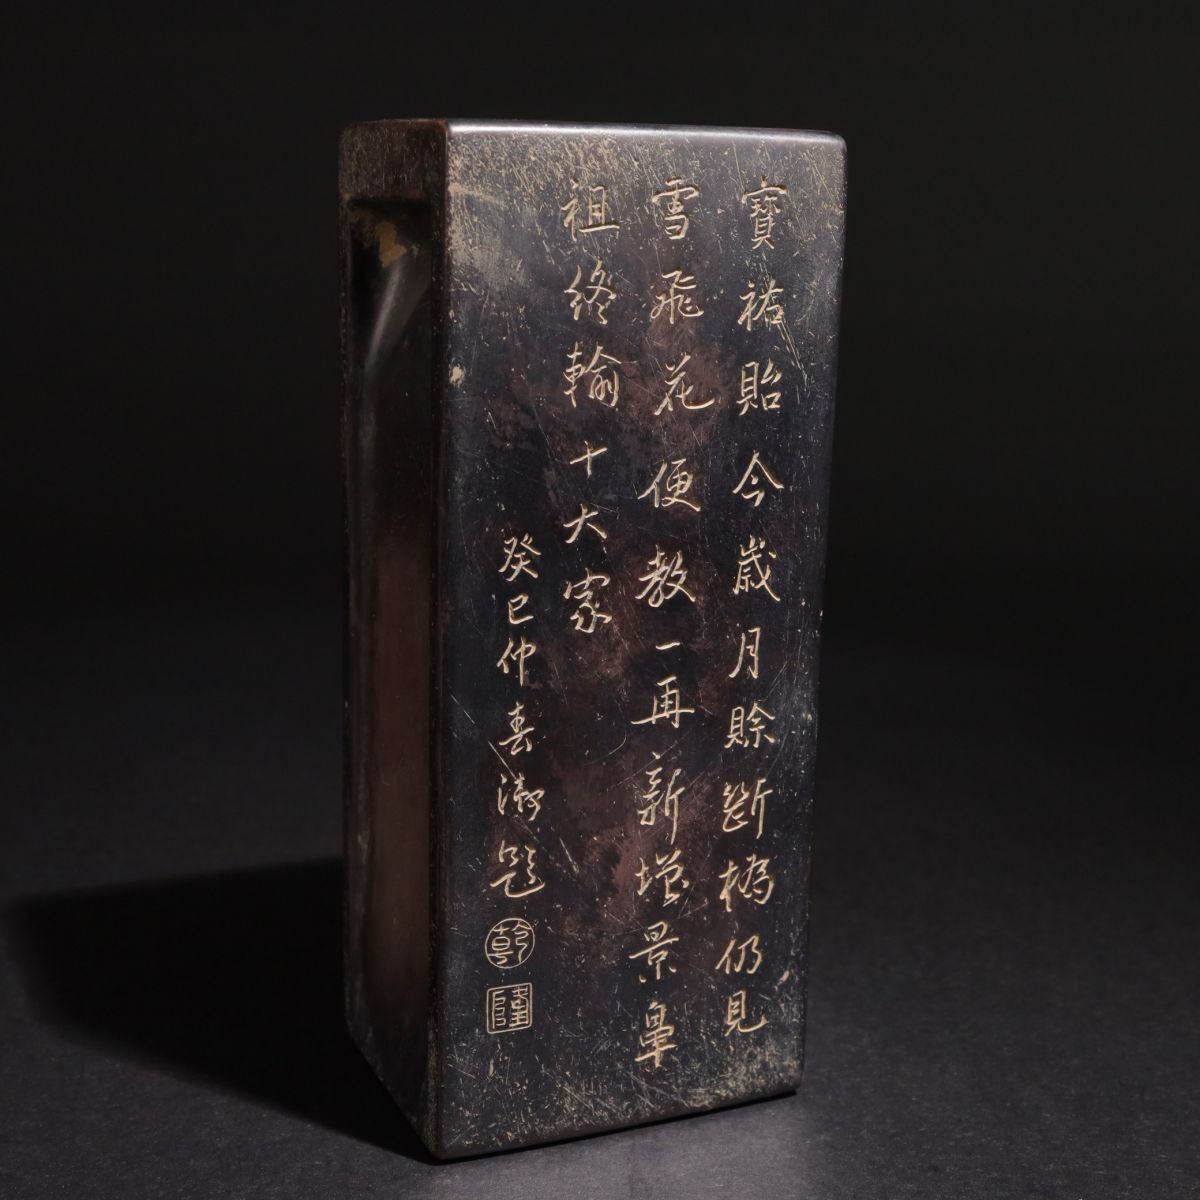 寶祐貽今歲月賒斷橋仍見
雪飛花便教一再新增景鼻
祖終輸十大家
癸巳仲春御題
乾
隆